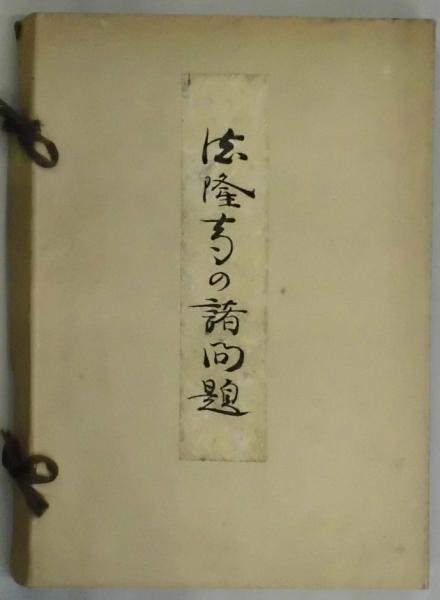 法隆寺の諸問題